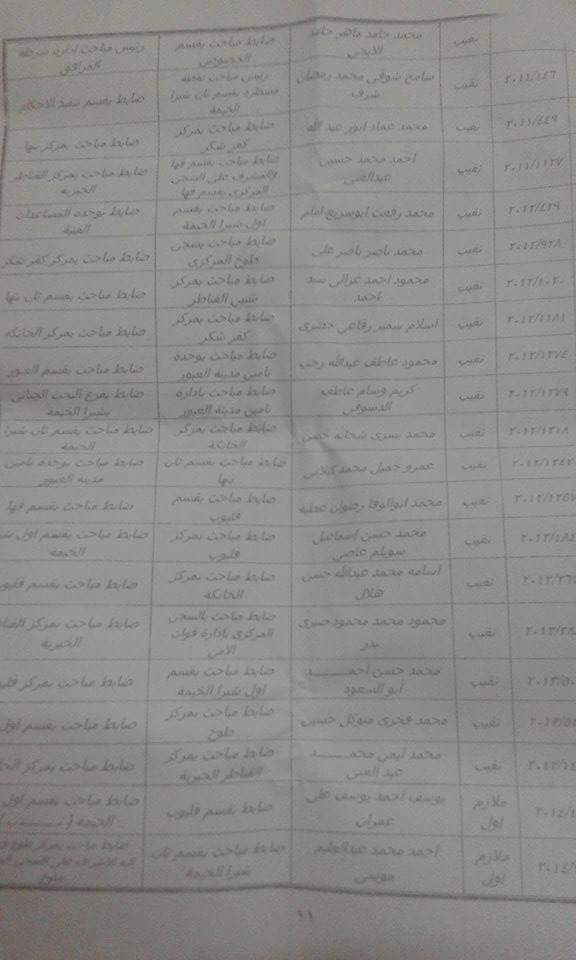 نقيب محمد حامد ماهر حامد ضابط مباحث بقسم الخصوص رئيس مباحث إدارة شرطة المرافق
٢٠١١/١٤٦ نقيب سامح شوقى محمد رمضان شرف رئيس مباحث نقطة بقسم ثان شبرا الخيمة ضابط بقسم تنفيذ الاحكام
٢٠١١/٤٤٩ نقيب محمد عماد انور عبد الله ضابط مباحث بمركز كفر شكر ضابط مباحث بمركز بنها
٢٠١١/١١٢٧ نقيب احمد محمد حسين عبدالغنى ضابط مباحث بقسم قها والمشرف على السجن المركزى بقسم قها ضابط مباحث بمركز القناطر الخيرية
٢٠١٢/٤٢٩ نقيب محمد رفعت ابوسريع امام ضابط مباحث بقسم اول شبرا الخيمة ضابط بوحدة المساعدات الفنية
٢٠١٢/٩٢٨ نقيب محمد ناصر ناصر على ضابط مباحث بسجن طوخ المركزى ضابط مباحث بمركز كفر شكر
٢٠١٢/١٠٢٠ نقيب محمود احمد غزالى سيد احمد ضابط مباحث بمركز شبين القناطر ضابط مباحث بقسم ثان بنها
٢٠١٢/١١٨١ نقيب اسلام سمير رفاعى ضابط مباحث بمركز كفر شكر ضابط مباحث بمركز الخانكة
٢٠١٢/١٢٧٤ نقيب محمود عاطف عبدالله رجب ضابط مباحث بوحدة تامين مدينة العبور ضابط مباحث بقسم العبور
٢٠١٢/١٢٧٩ نقيب كريم وسام عاطف الدسوقى ضابط مباحث بإدارة تامين مدينة العبور ضابط بفرع البحث الجنائى بشبرا الخيمة
٢٠١٢/١٣١٨ نقيب محمد يسرى شحاته حسن ضابط مباحث بمركز الخانكة ضابط مباحث بقسم ثان شبرا الخيمة
٢٠١٢/١٣٤٢ نقيب عمرو جميل محمد ضابط مباحث بقسم ثان بنها ضابط مباحث بوحدة تامين مدينة العبور
٢٠١٢/١٣٥٧ نقيب محمد ابوالوفا رضوان عطية ضابط مباحث بقسم قليوب ضابط مباحث بقسم قها
٢٠١٣/١٨٤ نقيب محمد حسن اسماعيل سويلم ضابط مباحث بمركز قليوب ضابط مباحث بقسم اول الخيمة
٢٠١٣/٢٦٥ نقيب اسامه محمد عبدالله حسن هلال ضابط مباحث بمركز الخانكة ضابط مباحث بقسم قليوب
نقيب محمود محمد محمود صبرى بدر ضابط مباحث بالسجن المركزى بإدارة قوات الامن ضابط مباحث بمركز الخيرية
نقيب محمد حسن احمـــد أبو السعود ضابط مباحث بقسم اول شبرا الخيمة ضابط مباحث بمركز
نقيب محمد فخرى متوكل حسين ضابط مباحث بمركز طوخ ضابط مباحث بقسم اول
نقيب محمد ايمن محمـــد عبد الغنى ضابط مباحث بمركز القناطر الخيرية ضابط مباحث بمركز
ملازم اول يوسف احمد يوسف على عمران ضابط بقسم قليوب ضابط مباحث بقسم اول الخيمة
ملازم اول احمد محمد عبدالعليم موسى ضابط مباحث بقسم ثان شبرا الخيمة ضابط مباحث بمركز
١١